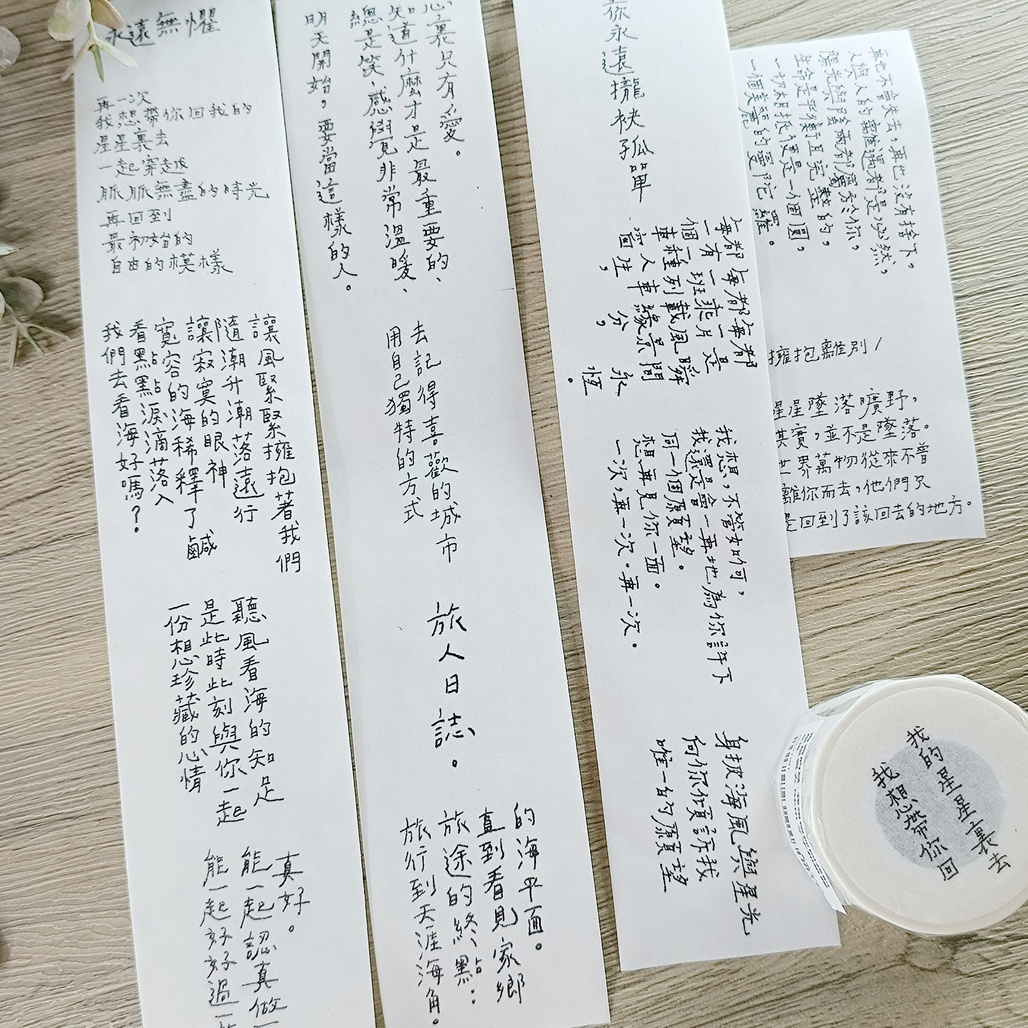 永遠無懼
再一次
我想帶你回我的
星星裏去
一起穿越
脈脈無盡的時光
再回到
最初始的
自由的模樣
我們去看海好嗎?
看點點淚滴落入
寬容的海稀釋了鹹
讓寂寞的眼神
隨潮升潮落遠行
讓風緊緊擁抱著我們
聽風看海的知足
是此時此刻與你一起
一份想珍藏的心情
真好。
能一起認真做
能一起好好過一
明天開始,要當這樣的人。
總是笑、感覺非常溫暖、
知道什麼才是最重要的、
心裏只有愛。
用自己獨特的方式
去記得喜歡的城市
旅人日誌。
旅行到天涯海角。
旅途的終點:
直到看見家鄉
的海平面。
你永遠攏袂孤單
每一個車窗,
都有一種人生,
每一班列車
都乘載緣分,
每一片風景
都是瞬間永恆。
我想,不管如何,
我還是會一再地為你許下
同一個願望。
想再見你一面。
一次,再一次.再一次。
身披海風與星光
向你傾訴我
唯一的願望
再也不曾失去,再也沒有捨下,
人與人的離遇都是必然,
陽光與陰雨都屬於你,
生命是平衡且完整的,
一切便是一個圓,
一個美麗的曼陀羅。
擁抱離別/
星星墜落曠野,
其實,並不是墜落。
世界萬物從來不曾
離你而去,他們只
是回到了該回去的地方。
我想帶你回
我的星星裏去